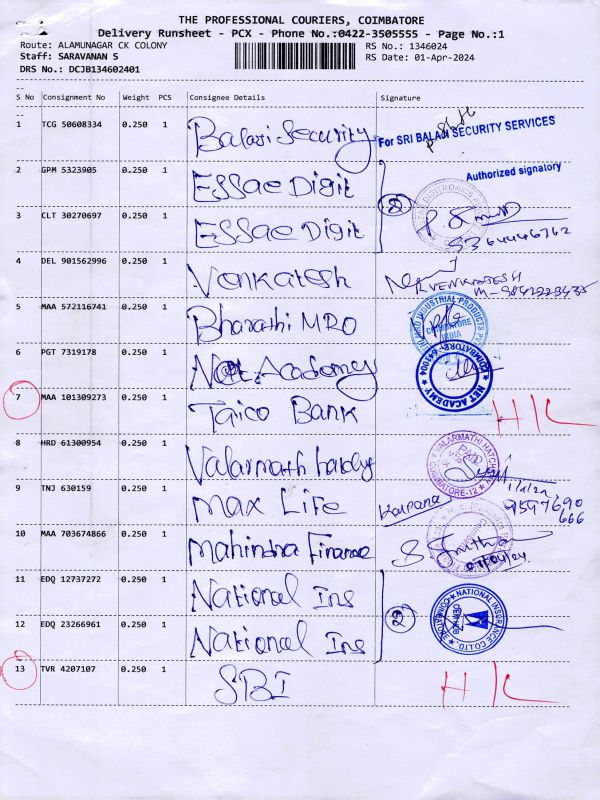 THE PROFESSIONAL COURIERS, COIMBATORE
Delivery Runsheet - PCX - Phone No.:0422-3505555 - Page No.:1
Route: ALAMUNAGAR CK COLONY
RS No.: 1346024
Staff: SARAVANAN S
RS Date: 01-Apr-2024
DRS No.: DCJB134602401
S No Consignment No Weight PCS Consignee Details Signature
1 TCG 50608334 0.250 1 Balaji Security For SRI BALAJI SECURITY SERVICES
Authorized signatory
2 GPM 5323905 0.250 1 ESSae Digit
3 CLT 30270697 0.250 1 ESSae Digit 2
9364446762
4 DEL 901562996 0.250 1 Venkatesh R VENKATESH
5 MAA 572116741 0.250 1 Bharathi MRO INDUSTRIAL PRODUCTS COIMBATORE INDIA
6 PGT 7319178 0.250 1 Net Academy NET ACADEMY COIMBATORE 641004
7 MAA 101309273 0.250 1 Taico Bank H/L
8 HRD 61300954 0.250 1 Valarmath hatchy VALARMATHI HATCH COIMBATORE-12
9 TNJ 630159 0.250 1 Max Life Kalpana 9597690
666
10 MAA 703674866 0.250 1 Mahindra Finance 01/04/24
11 EDQ 12737272 0.250 1 National Ins
12 EDQ 23266961 0.250 1 National Ins 2 NATIONAL INSURANCE CO.LTD. COIMBATORE
13 TVR 4207107 0.250 1 SBI H/L